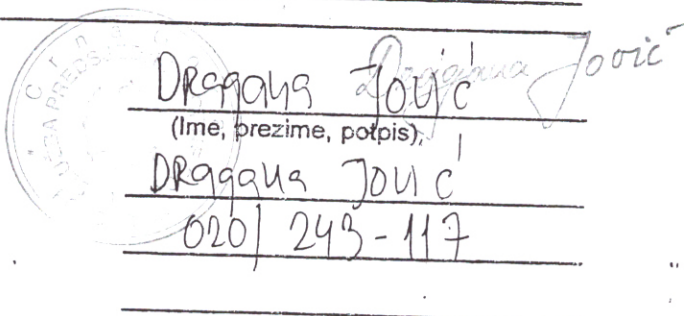 Dragana Jović Dragana Jović
(Ime, prezime, potpis),
Dragana Jović
020/ 243-117
Crna